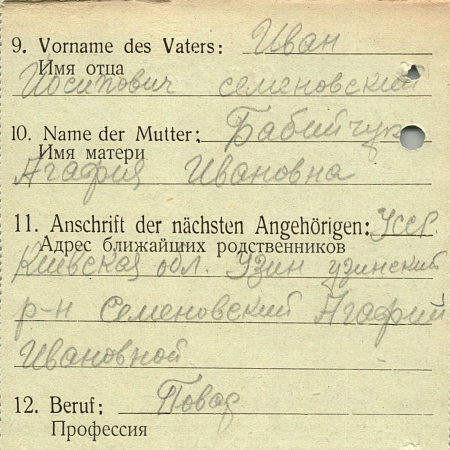 9. Vorname des Vaters: Иван
Имя отца
Иосипович семеновский
10. Name der Mutter: Бабийчук
Имя матери
Агафия Ивановна
11. Anschrift der nächsten Angehörigen: УССР
Адрес ближайших родственников
Киевская обл. Узин узинский
р-н Семеновский Агафий
Ивановной
12. Beruf: Повар
Профессия